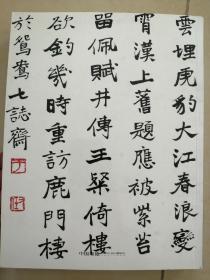 雲埋虎豹大江春浪變
霄漢上舊題應被紫苔
畱佩賦井傳王粲倚樓
欲釣幾時重訪鹿門棲
於鴛鴦七誌齋